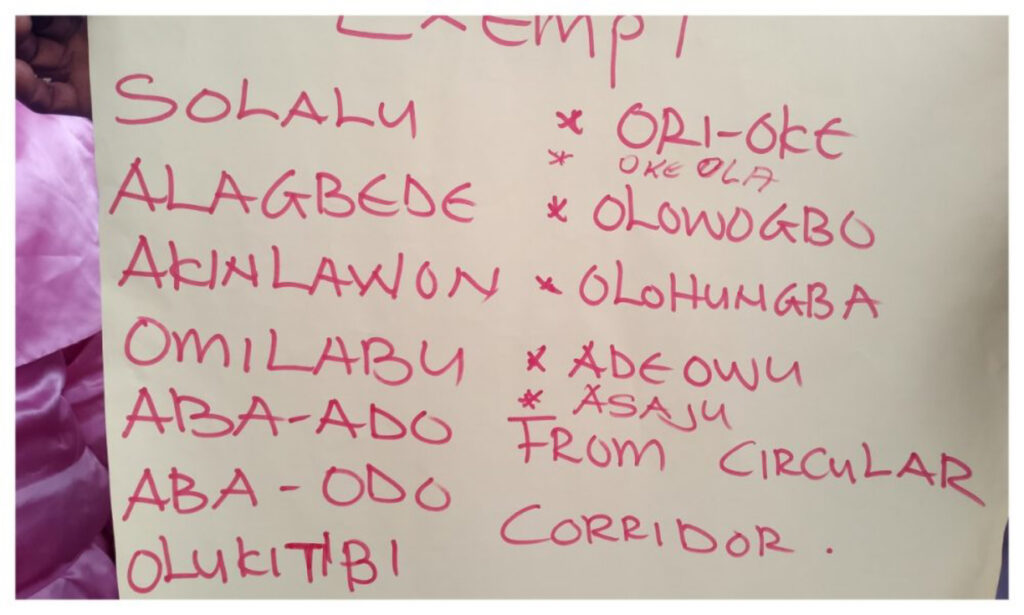 Exempt
SOLALU
ALAGBEDE
AKINLAWON
OMILABU
ABA-ADO
ABA-ODO
OLUKITIBI
* ORI-OKE
* OKE OLA
* OLOWOGBO
* OLOHUNGBA
* ADEOWU
* ASAJU
FROM CIRCULAR
CORRIDOR.